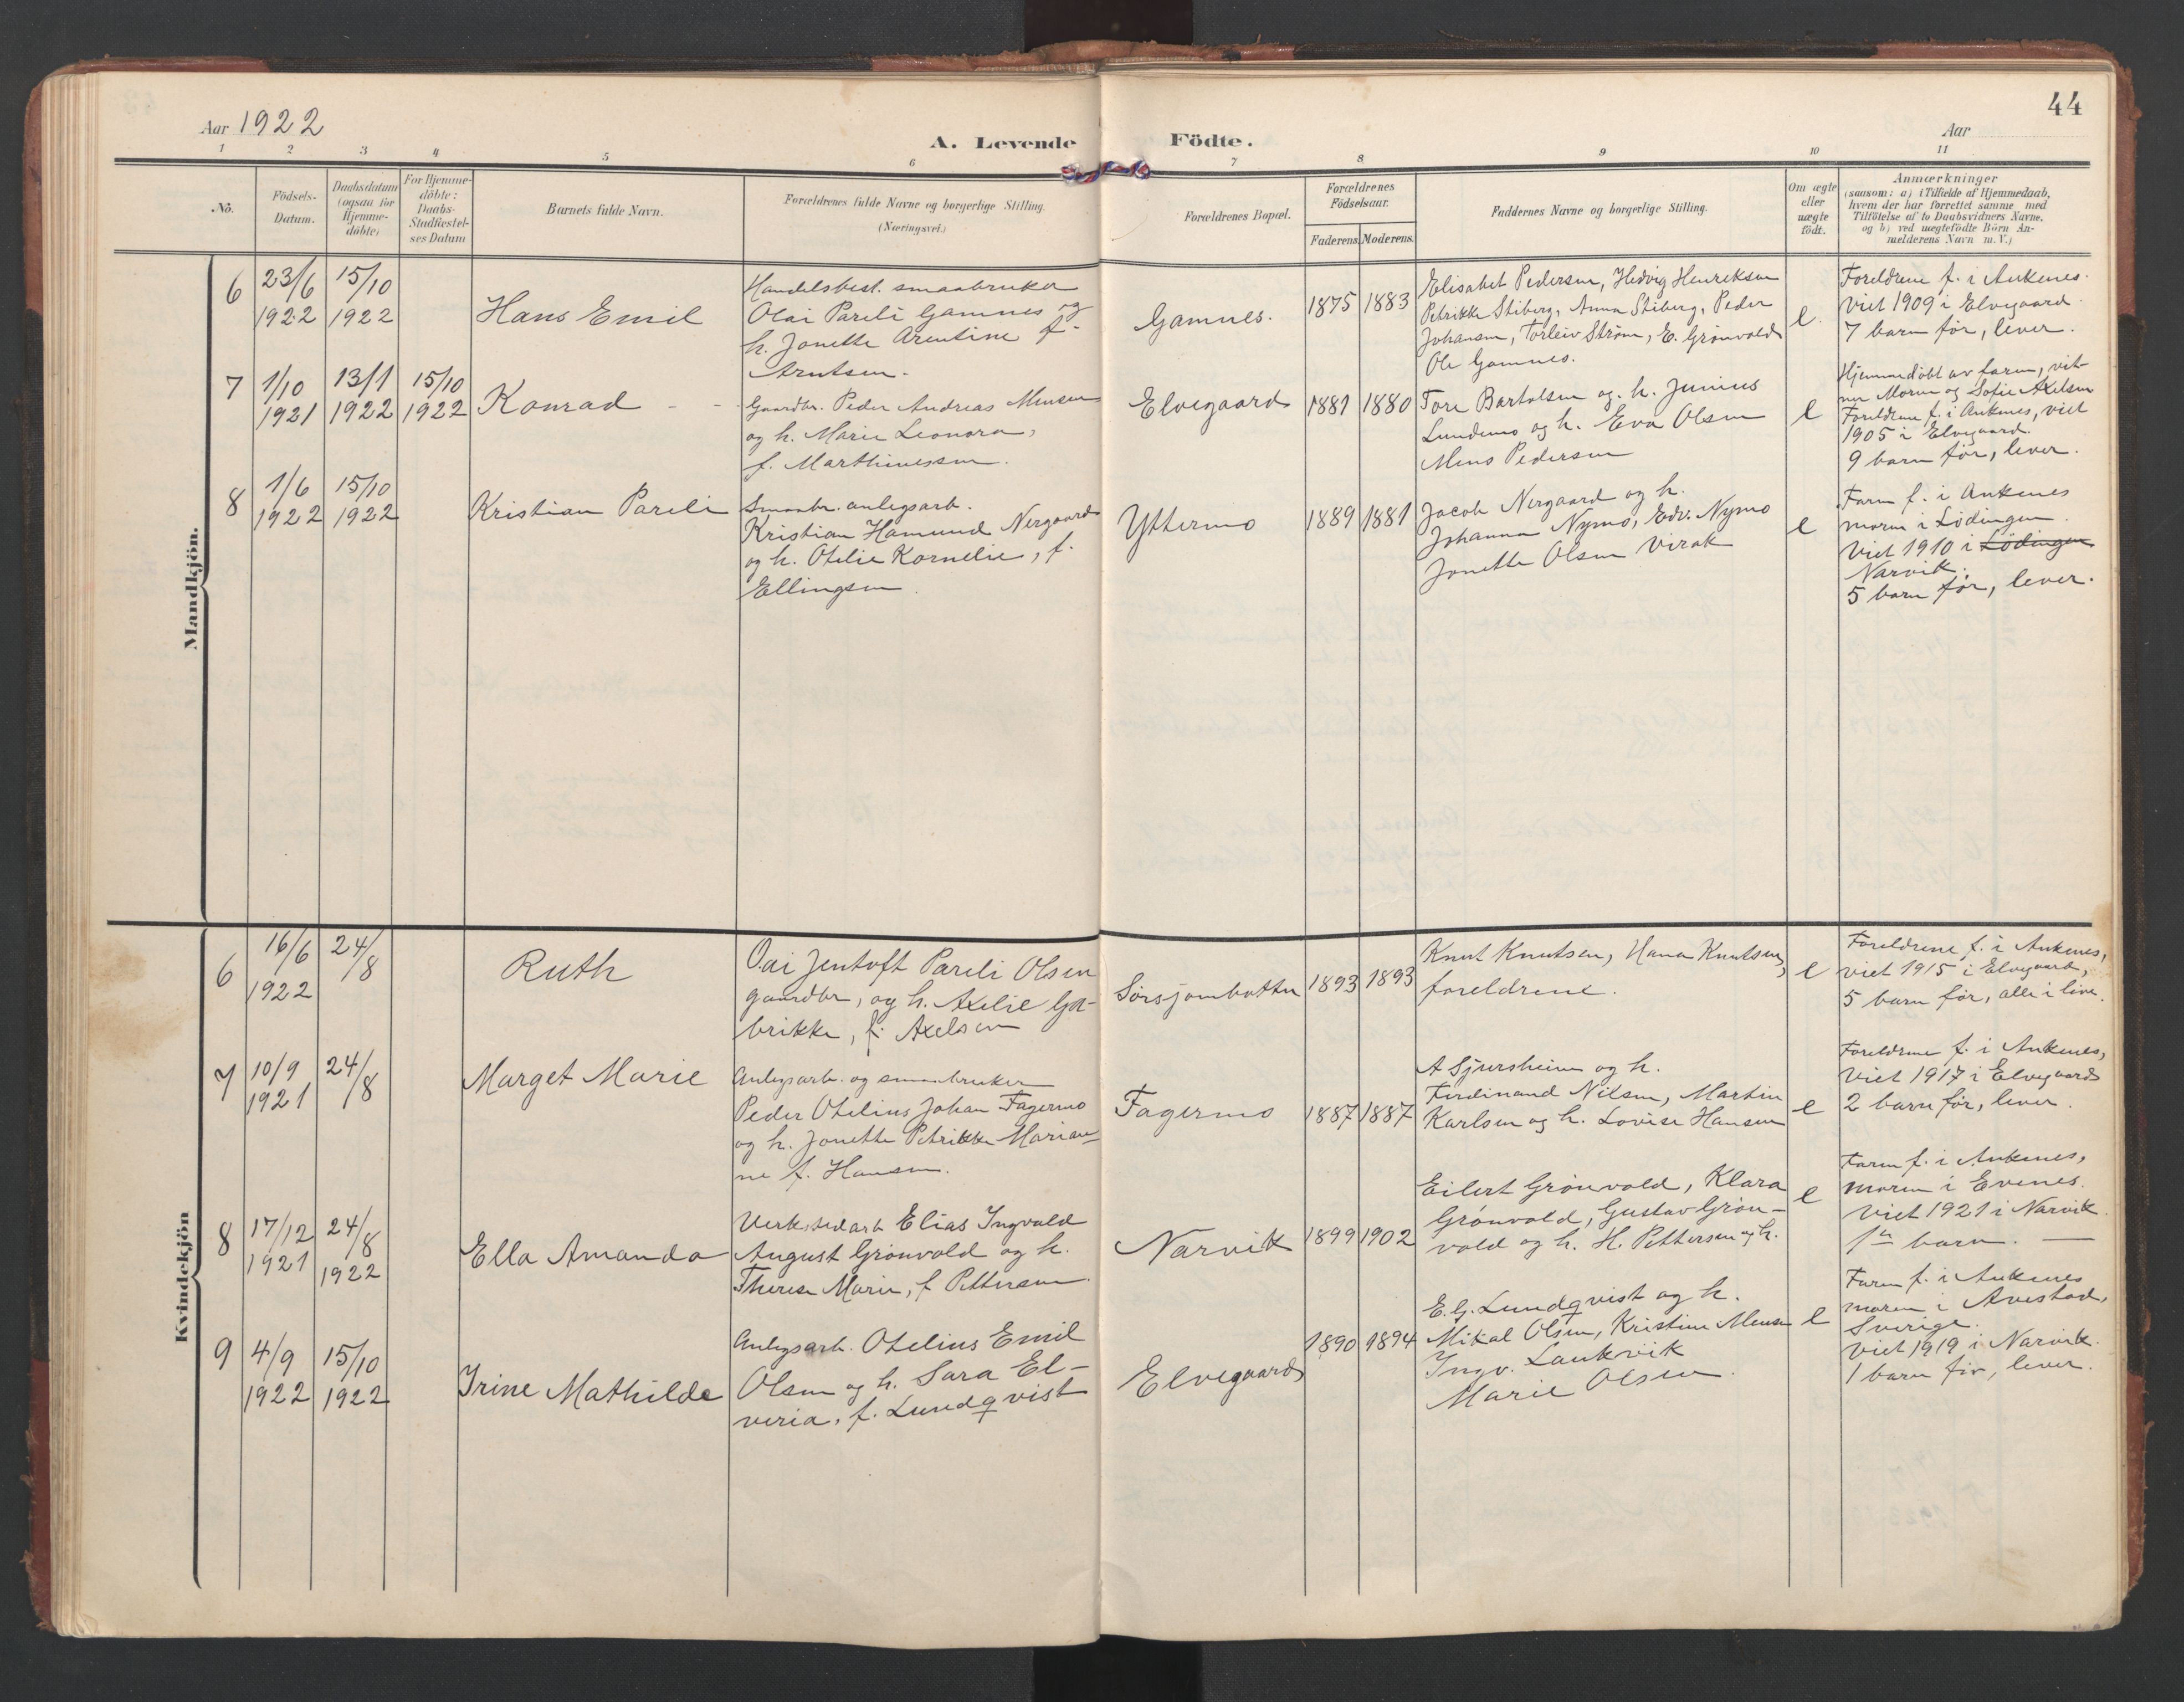 44
Aar 1922
A. Levende Födte.
Aar
1 2 3 4 5 6 7 8 9 10 11
No.
Födsels-
Datum.
Daabsdatum
(ogsaa for
Hjemme-
döbte)
For Hjemme-
döbte:
Daabs-
Stadfæstel-
ses Datum
Barnets fulde Navn.
Forældrenes fulde Navne og borgerlige Stilling.
(Næringsvei.)
Forældrenes Bopæl.
Forældrenes
Födselsaar.
Faderens. Moderens.
Faddernes Navne og borgerlige Stilling.
Om ægte
eller
uægte
födt.
Anmærkninger
(saasom: a) i Tilfælde af Hjemmedaab,
hvem der har forrettet samme med
Tilföielse af to Daabsvidners Navne,
og b) ved uægtefödte Börn An-
melderens Navn m. V.)
Mandkjön.
6
23/6
1922
15/10
1922
Hans Emil
Handelsbest. smaabruker
Olai Pareli Gamnes og
h. Jonette Arentine f.
Arntsen.
Gamnes.
1875 1883
Elisabet Pedersen, Hedvig Henriksen
Petrikke Stiberg, Anna Stiberg, Peder
Johansen, Torleiv Strøm, E. Grönvold
Ole Gamnes.
e.
Foreldrene f. i Ankenes.
Viet 1909 i Elvegaard.
7 barn før, lever.
7
1/10
1921
13/1
1922
15/10
1922
Konrad - -
Gaardbr. Peder Andreas Mensen
og h. Marie Leonora,
f. Marthinessen.
Elvegaard
1881 1880
Tore Bartolsen og h. Junius
Lundemo og h. Eva Olsen
Mens Pedersen
e
Hjemmedøbt av faren, vit-
ner Moren og Sofie Axelsen
Foreldrene f. i Ankenes, viet
1905 i Elvegaard.
9 barn før, lever.
8
1/6
1922
15/10
1922
Kristian Pareli
Smaabr. anlegsarb.
Kristian Hamund Nergaard
og h. Otelie Kornelie, f.
Ellingsen.
Yttermo
1889 1881
Jacob Nergaard og h.
Johanna Nymo, Edv. Nymo
Jonette Olsen Virak
e
Faren f. i Ankenes
moren i Lødingen.
Viet 1910 i Lödingen
Narvik.
5 barn før, lever.
Kvindekjön
6
16/6
1922
24/8
Ruth
Oai Jentoft Pareli Olsen
gaardbr, og h. Axelie Ga-
brikke, f. Axelsen
Sørsjombotten
1893 1893
Knut Knutsen, Hana Knutsen,
foreldrene.
e
Foreldrene f. i Ankenes,
viet 1915 i Elvegaard,
5 barn før, alle i live.
7
10/9
1921
24/8
Marget Marie
Anlegsarb. og smaabruker
Peder Otelius Johan Fagermo
og h. Jonette Petrikke Marian-
ne f. Hansen.
Fagermo
1887 1887
A Sjursheim og h.
Ferdinand Nilsen, Martin
Karlsen og h. Lovise Hansen
e
Foreldrene f. i Ankenes,
Viet 1917 i Elvegaard
2 barn før, lever.
8
17/12
1921
24/8
1922
Ella Amanda
Verkstedarb Elias Ingvald
August Grönvold og h.
Therese Marie, f Pettersen.
Narvik
1899 1902
Eilert Grönvold, Klara
Grönvold, Gustav Grön-
vold og h. H. Pettersen og h.
e
Faren f. i Ankenes,
moren i Evenes.
viet 1921 i Narvik.
1ste barn. —
9
4/9
1922
15/10
1922
Irine Mathilde
Anlegsarb. Otelius Emil
Olsen og h. Sara El-
veria, f. Lundqvist
Elvegaard
1890 1894
E. G. Lundqvist og h.
Mikal Olsen, Kristine Mensen
Ingv. Lankvik
Marie Olsen.
e
Faren f. i Ankenes
moren i Avestad,
Sverige.
Viet 1919 i Narvik.
1 barn før, lever.